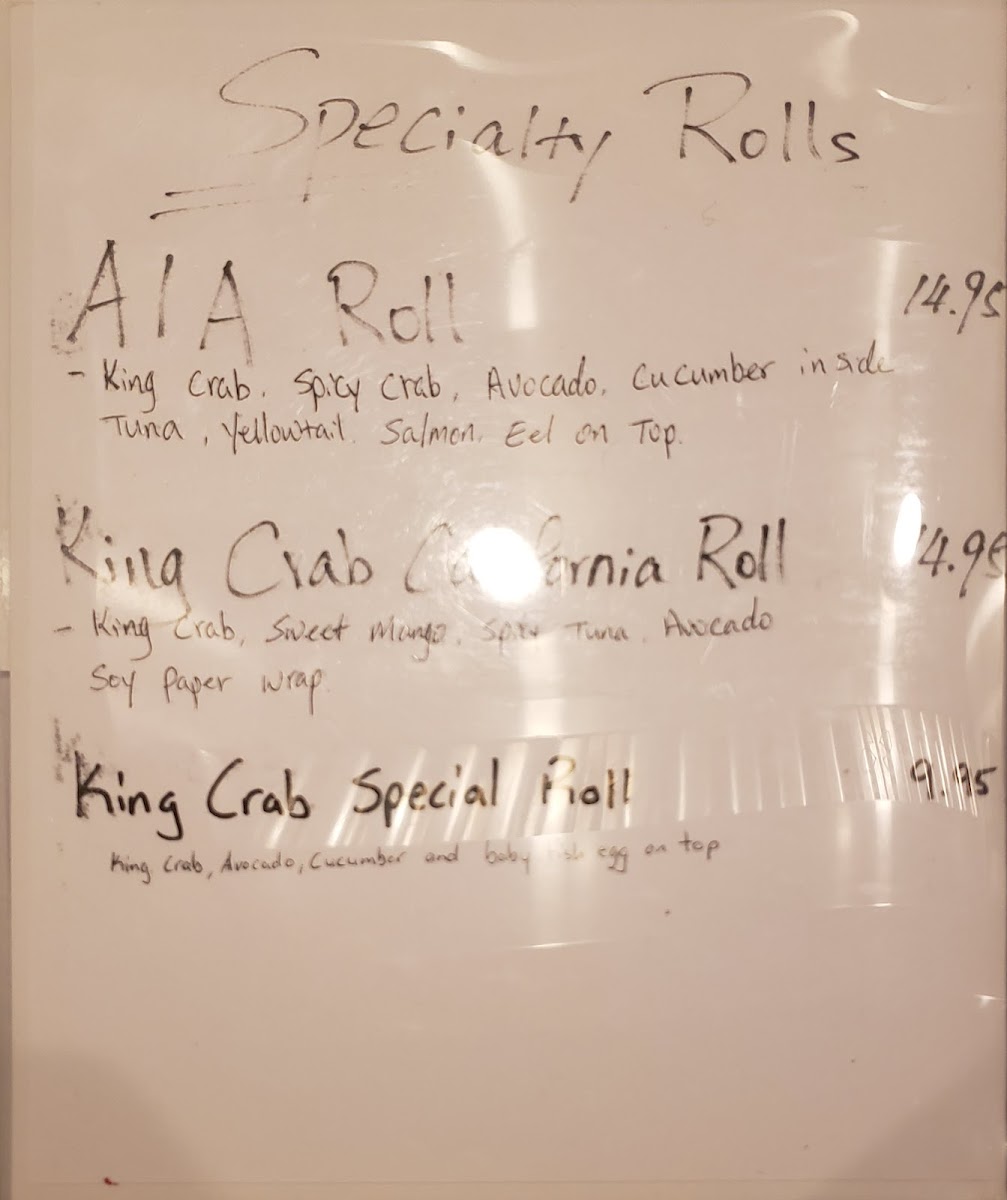 Specialty Rolls
A1A Roll 14.95
- King Crab. Spicy Crab, Avocado, Cucumber inside
Tuna, Yellowtail. Salmon. Eel on Top.
King Crab California Roll 14.95
- King Crab, Sweet Mango. Spicy Tuna. Avocado
Soy Paper Wrap.
King Crab Special Roll 9.95
King Crab, Avocado, Cucumber and baby fish egg on top